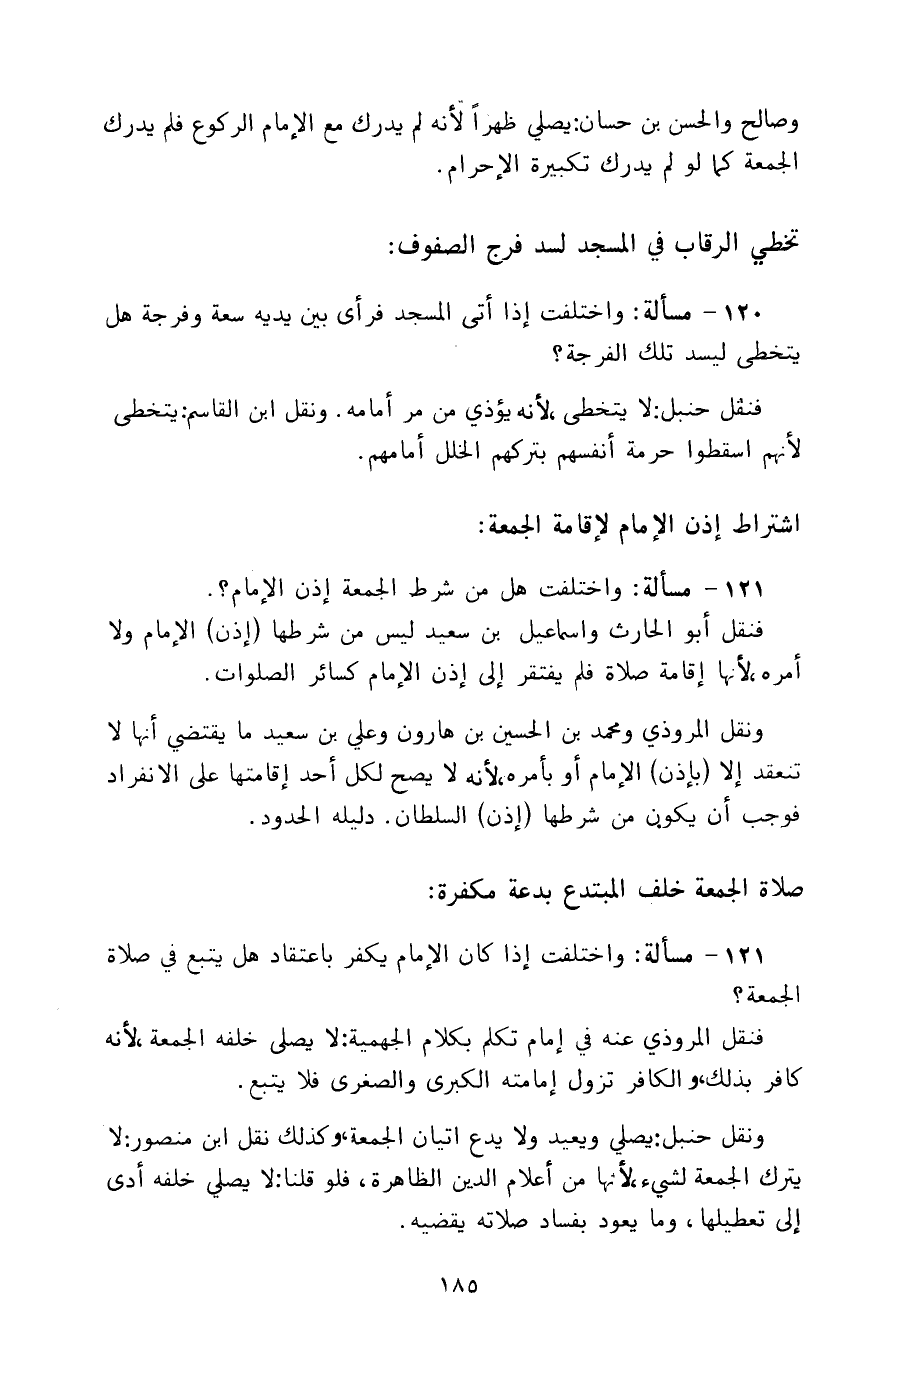 وصالح والحسن بن حسان:يصلي ظهراً لأنه لم يدرك مع الإمام الركوع فلم يدرك
الجمعة كما لو لم يدرك تكبيرة الإحرام.
تخطي الرقاب في المسجد لسد فرج الصفوف:
١٢٠ - مسألة: واختلفت إذا أتى المسجد فرأى بين يديه سعة وفرجة هل
يتخطى ليسد تلك الفرجة؟
فنقل حنبل:لا يتخطى،لأنه يؤذي من مر أمامه. ونقل ابن القاسم:يتخطى
لأنهم اسقطوا حرمة أنفسهم بتركهم الخلل أمامهم.
اشتراط إذن الإمام لإقامة الجمعة:
١٢١ - مسألة: واختلفت هل من شرط الجمعة إذن الإمام؟.
فنقل أبو الحارث واسماعيل بن سعيد ليس من شرطها (إذن) الإمام ولا
أمره،لأنها إقامة صلاة فلم يفتقر إلى إذن الإمام كسائر الصلوات.
ونقل المروذي ومحمد بن الحسين بن هارون وعلي بن سعيد ما يقتضي أنها لا
تنعقد إلا (بإذن) الإمام أو بأمره،لأنه لا يصح لكل أحد إقامتها على الانفراد
فوجب أن يكون من شرطها (إذن) السلطان. دليله الحدود.
صلاة الجمعة خلف المبتدع بدعة مكفرة:
١٢١ - مسألة: واختلفت إذا كان الإمام يكفر باعتقاد هل يتبع في صلاة
الجمعة؟
فنقل المروذي عنه في إمام تكلم بكلام الجهمية:لا يصلي خلفه الجمعة،لأنه
كافر بذلك،والكافر تزول إمامته الكبرى والصغرى فلا يتبع.
ونقل حنبل:يصلي ويعيد ولا يدع اتيان الجمعة،وكذلك نقل ابن منصور:لا
يترك الجمعة لشيء،لأنها من أعلام الدين الظاهرة، فلو قلنا:لا يصلي خلفه أدى
إلى تعطيلها، وما يعود بفساد صلاته يقضيه.
١٨٥